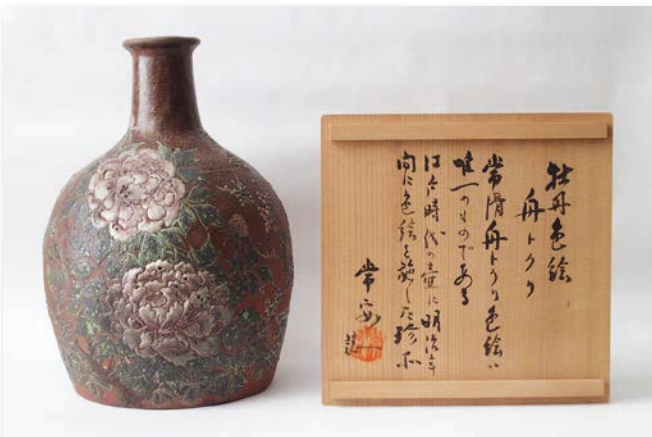 牡丹色絵
舟トクリ
常滑舟トクリ色絵ハ
唯一のものである
江戸時代の壷に明治年
間に色絵を施した珍品
常安